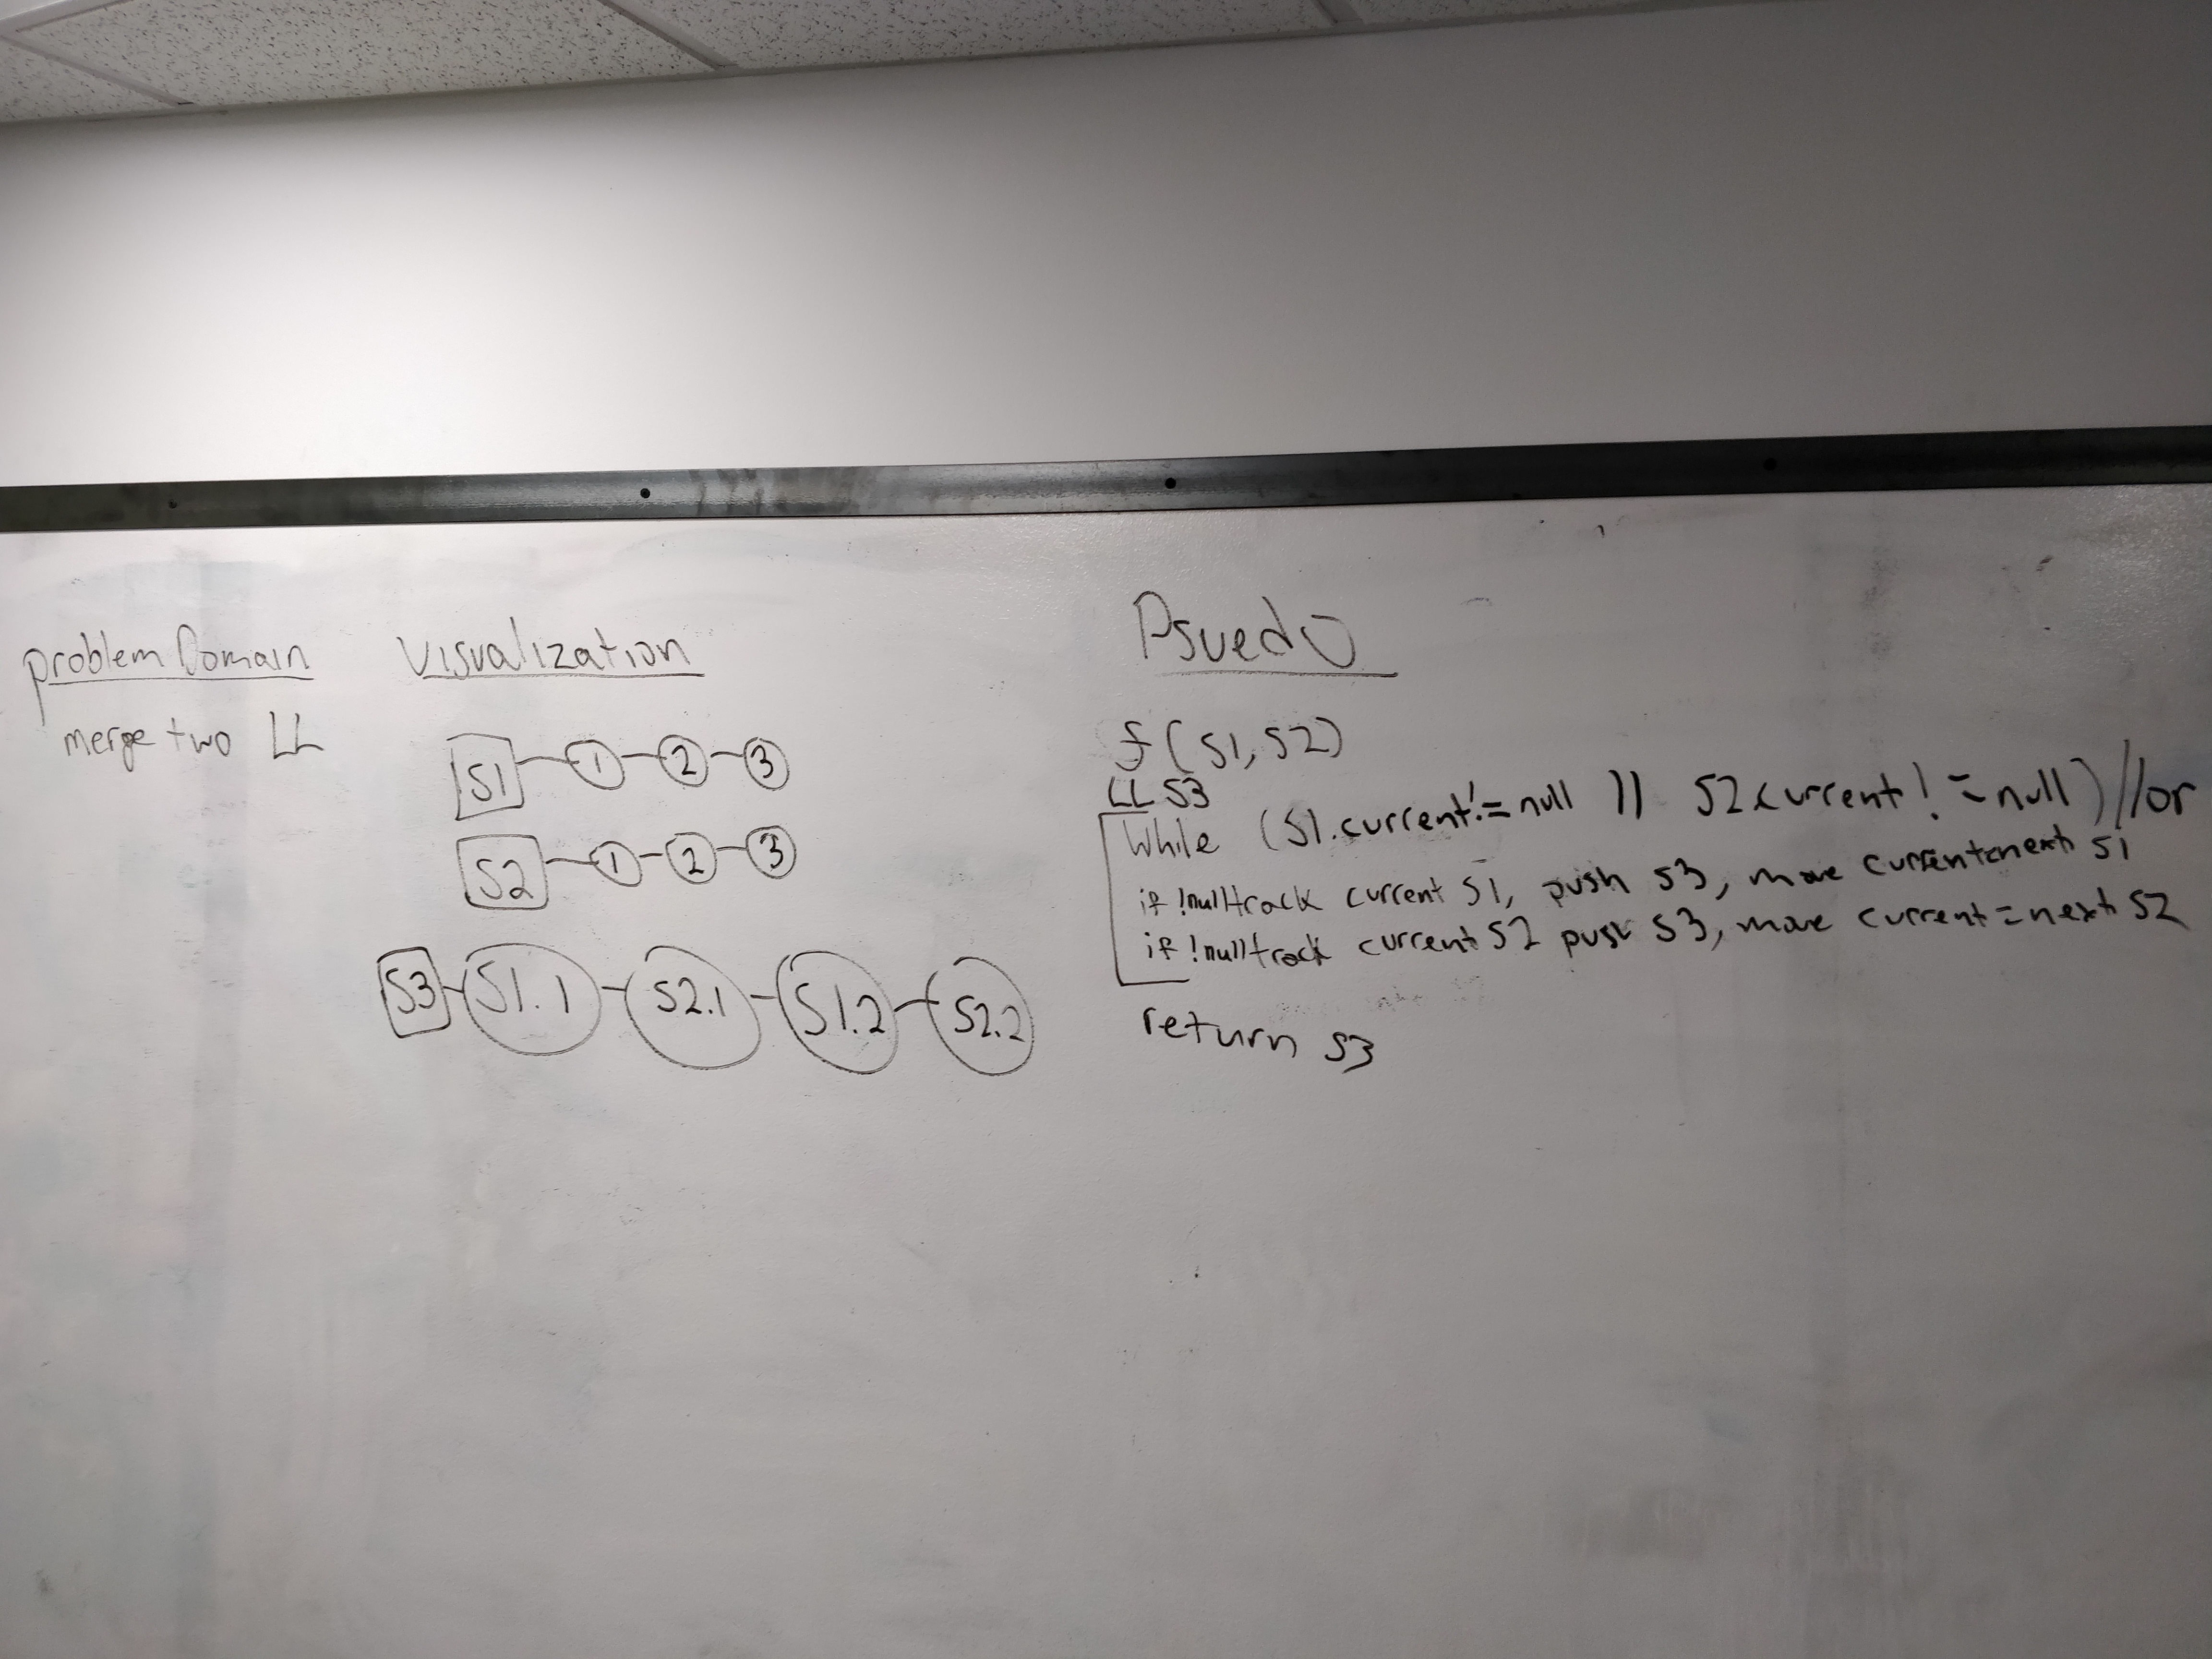 problem Domain
merge two LL
Visualization
S1 1 2 3
S2 1 2 3
S3 S1.1 S2.1 S1.2 S2.2
Psuedo
f(S1, S2)
LL S3
While (S1.current != null || S2.current != null) //or
if !null track current S1, push S3, move current=next S1
if !null track current S2 push S3, move current=next S2
return S3